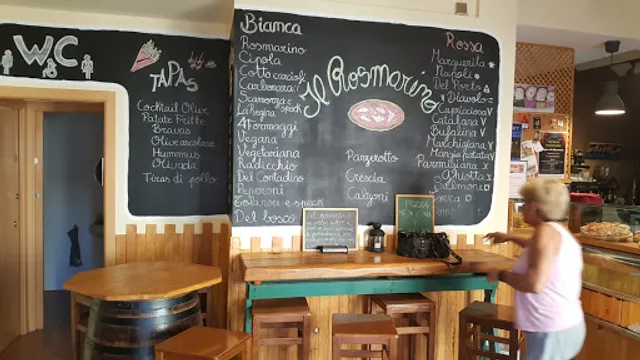 WC
TAPAS
Cocktail Olive
Patate Fritte
Bravas
Olive ascolane
Hummus
Olivada
Tiras di pollo
Bianca
Rosmarino
Cipola
Carbonara
Scamorza e speck
La Regina
4 Formaggi
Vegana
Vegetariana
Radicchio
Del Contadino
Peperoni
Del bosco
Il Rosmarino
Panzerotto
Crescia
Calzoni
Rossa
Margherita
Napoli
Del Porto
Diavola
Capricciosa
Catalana
Bufalina
Marchigiana
Mangia patata
Parmigiana
Ghiotta
Salmone
PIZZA